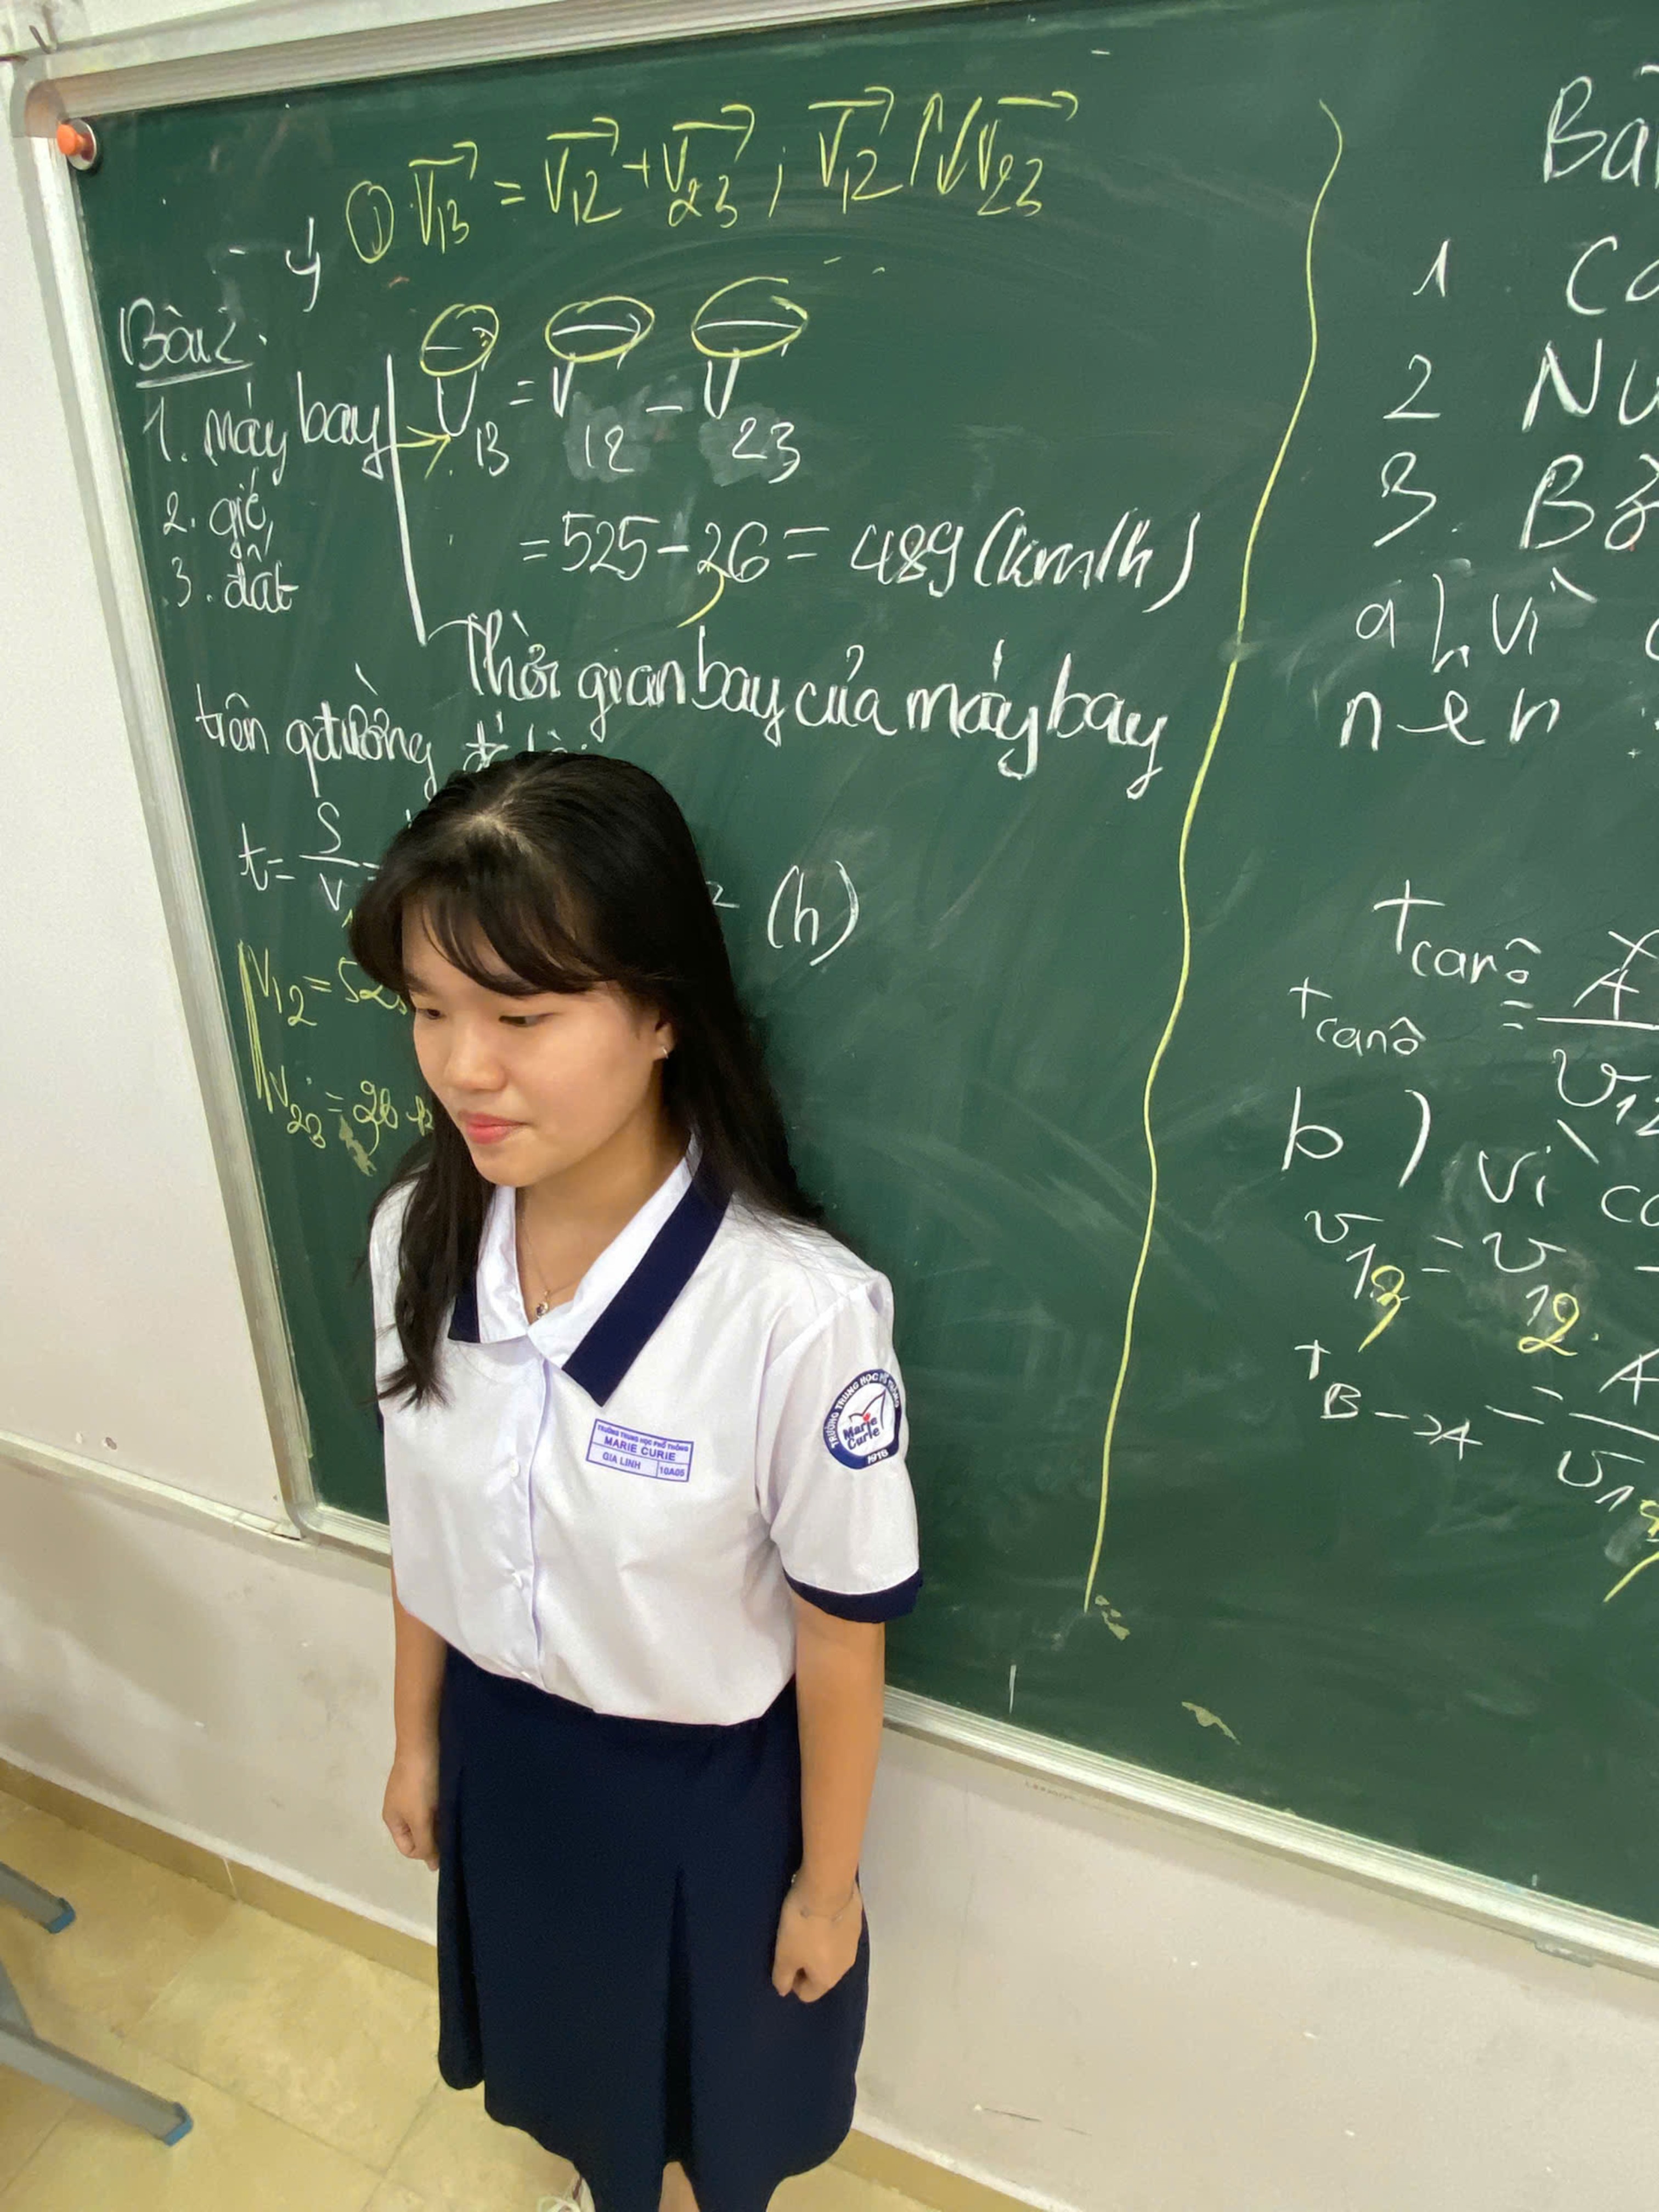 ① V₁₃ = V₁₂ + V₂₃ ; V₁₂ ↑↓ V₂₃
- ý
Bài 2.
1. máy bay
2. gió
3. đất
→ V₁₃ = V₁₂ - V₂₃
= 525 - 36 = 489 (km/h)
Thời gian bay của máy bay
trên qđường
t = S
V
(h)
V₁₂ = 525
V₂₃ =
1
2
3.
a), vì
nên
t canô = A
t canô
v₁₂
b) vì
v₁₃ = v₁₂ -
t B→A = A
v₁₃
TRƯỜNG TRUNG HỌC PHỔ THÔNG
MARIE CURIE
GIA LINH 10A05
TRƯỜNG TRUNG HỌC PHỔ THÔNG
Marie
Curie
1918